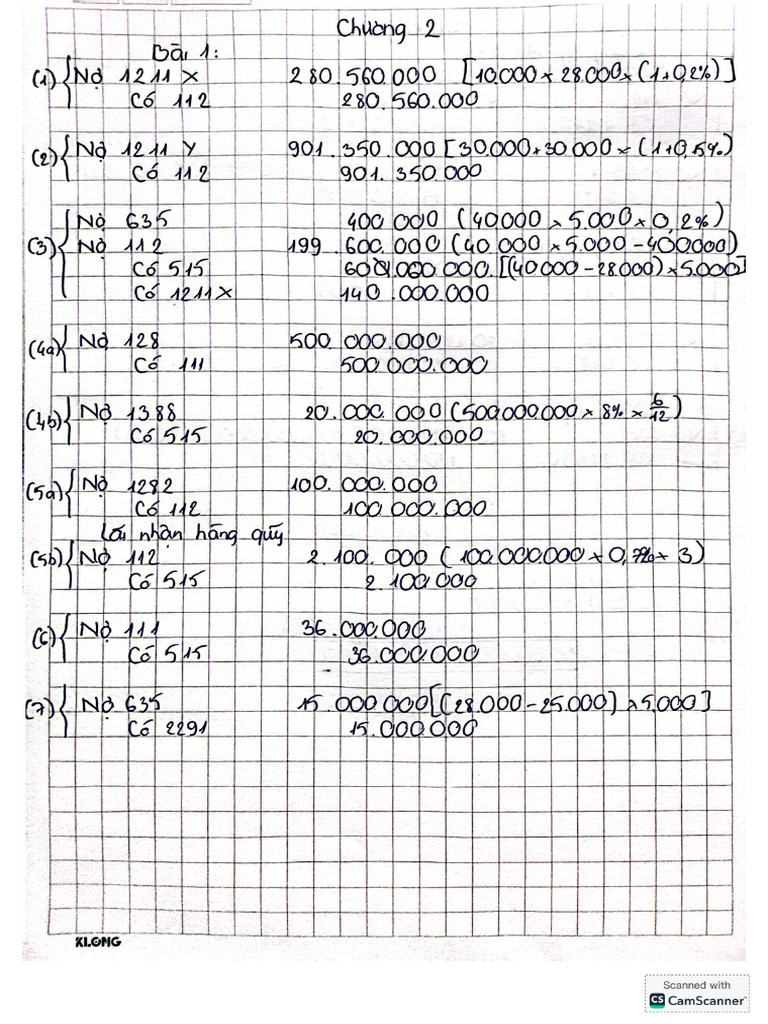 Chương 2
Bài 1:
(1) Nợ 1211 X 280.560.000 [10.000 × 28.000 × (1+0,2%)]
Có 112 280.560.000
(2) Nợ 1211 Y 901.350.000 [30.000 × 30.000 × (1+0,15%)
Có 112 901.350.000
Nợ 635 400.000 (40.000 × 5.000 × 0,2%)
(3) Nợ 112 199.600.000 (40.000 × 5.000 - 400.000)
Có 515 60.000.000 [(40.000 - 28.000) × 5.000]
Có 1211X 140.000.000
(4a) Nợ 128 500.000.000
Có 111 500.000.000
(4b) Nợ 1388 20.000.000 (500.000.000 × 8% × 6/12)
Có 515 20.000.000
(5a) Nợ 1282 100.000.000
Có 112 100.000.000
Lãi nhận hàng quý
(5b) Nợ 112 2.100.000 (100.000.000 × 0,7% × 3)
Có 515 2.100.000
(6) Nợ 111 36.000.000
Có 515 36.000.000
(7) Nợ 635 15.000.000 [(28.000 - 25.000) × 5.000]
Có 2291 15.000.000
KLONG
Scanned with
CS CamScanner